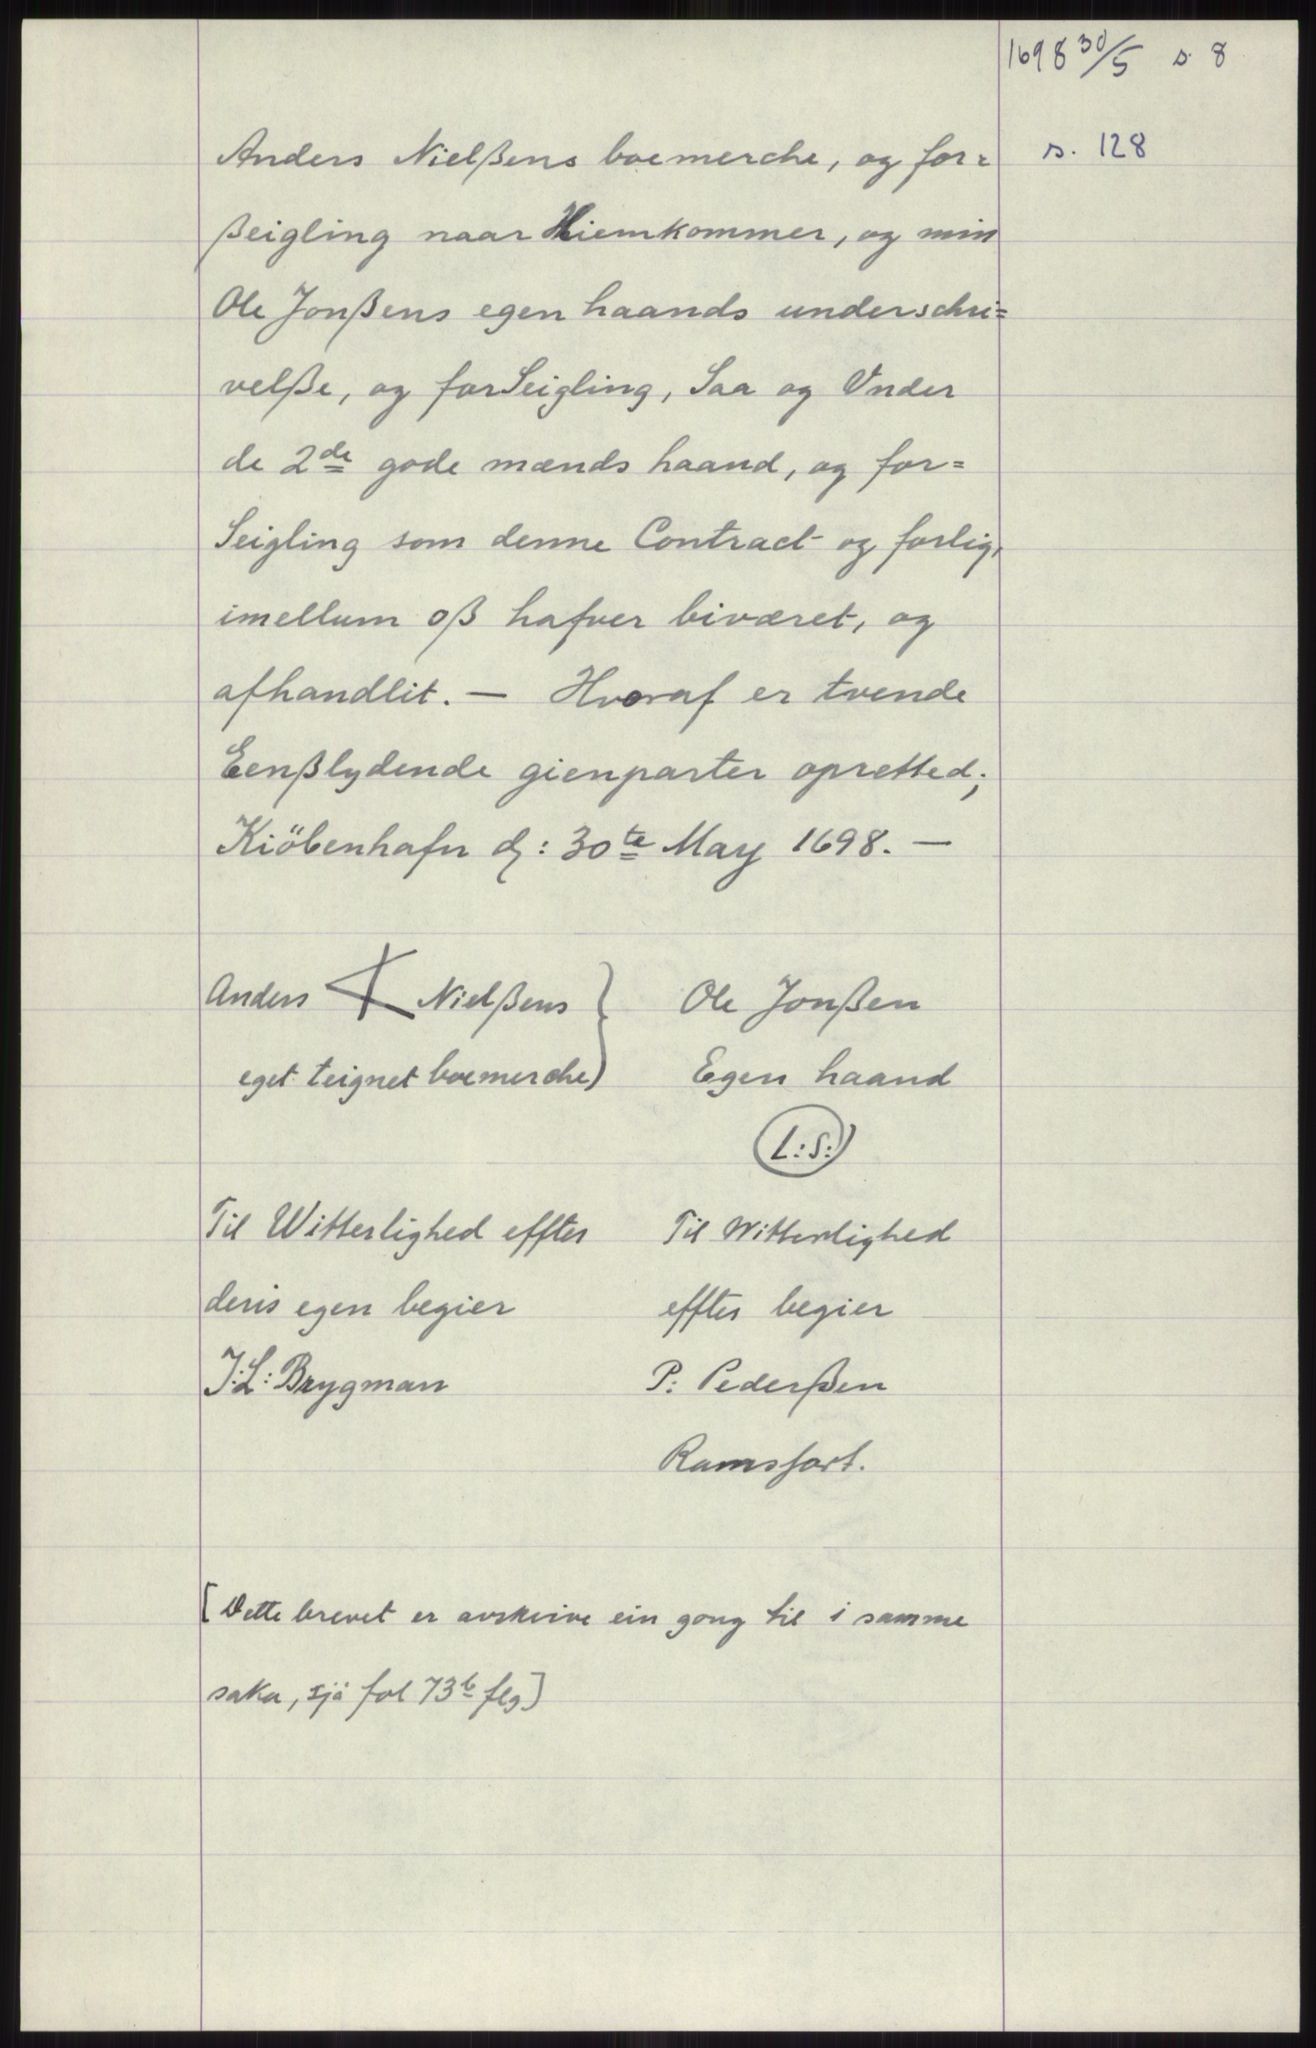 1698 30/5 s. 8
s. 128
Anders Nielßens boemerche, og for=
ßeigling naar Hiemkommer, og min
Ole Jonßens egen haands underschri=
velße, og forSeigling, Saa og Vnder
de 2de gode mænds haand, og for=
Seigling som denne Contract og forlig,
imellum oß hafver biværet, og
afhandlit. — Hvoraf er tvende
Eenßlydende gienparter opretted;
Kiöbenhafn d: 30te May 1698. —
Anders Nielßens } Ole Jonßen
eget teignet boemerche) Egen haand
L:S:
Til Witterlighed effter Til Witterlighed
deris egen begier effter begier
J:L: Brygman P: Pederßen
Ramsfort.
[Dette brevet er avskrive ein gong til i samme
saka, sjå fol 73b flg]